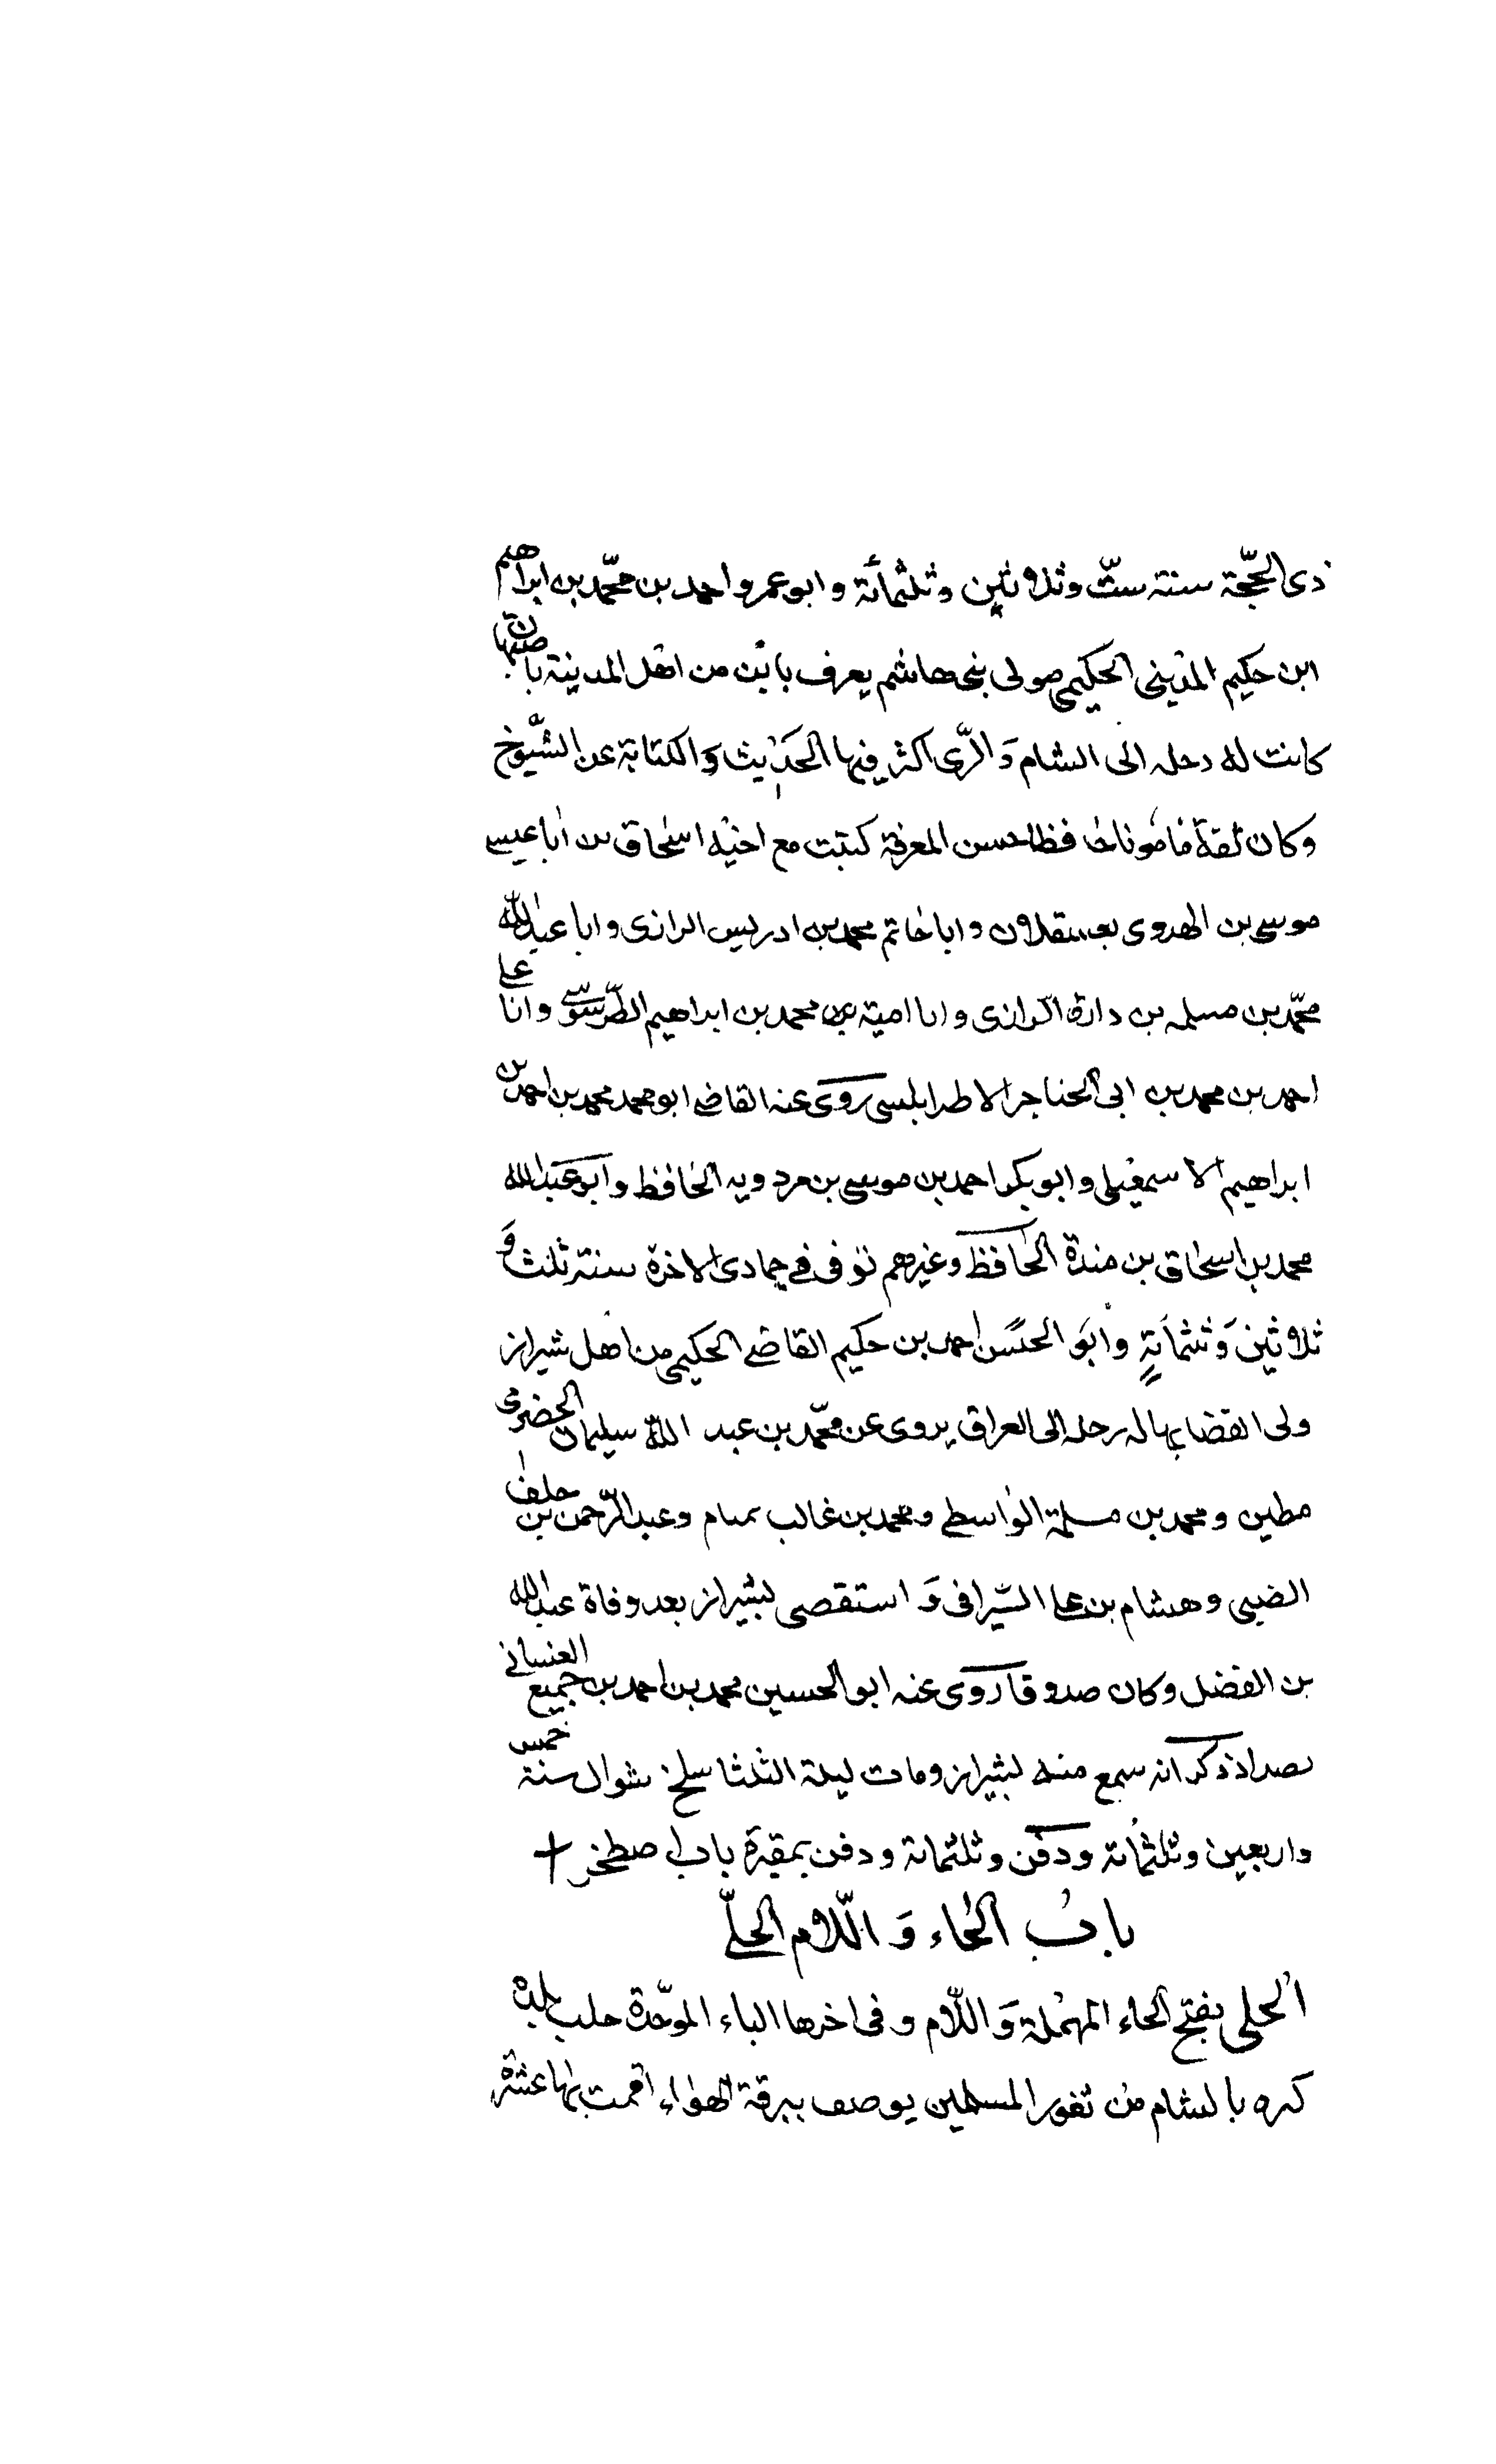 ذى الحجّة سنة ستّ وثلاثين وثلثمائة وابو عمرو احمد بن محمّد بن ابراهيم
ابن حكيم المدينى الحكيمى مولى بنى هاشم يعرف بابن من اهل المدينة باصبهان
كانت له رحله الى الشام وَالرّى اكثر فيها الحَديث وَالكتابة عن الشّيوخ
وكان ثقة مامونا حافظا حسن المعرفة كتبت مع اخيه اسحاق بن ابا عيسى
موسى بن الهروى بعسقلان وابا حاتم محمد بن ادريس الرازى وابا عبد الله
محمّد بن مسلمه بن دارة الرازى وابا امية بن محمد بن ابراهيم الطّرسوسى وابا على
احمد بن محمد بن ابى الحناجر الاطرابلسى روى عنه القاضى ابو محمد محمد بن احمد بن
ابراهيم الاسمعيلى وابو بكر احمد بن موسى بن مردويه الحافظ وابو عبد الله
محمد بن اسحاق بن مندة الحافظ وغيرهم توفى فى جمادى الاخرة سنة ثلث وَ
ثلاثين وَثلثمائةٍ وابَو الحسَن احمد بن حكيم القاضى الحكيمى من اهل شيراز
ولى القضا بها له رحله الى العراق يروى عن محمّد بن عبد اللّه سليمان الحضرمى
مطين ومحمد بن مسلمة الواسطى ومحمد بن غالب تمتام وعبد الرّحمن بن خلف
الضبى وهشام بن على السّيرافى وَاستقصى بشيراز بعد وفاة عبد الله
بن الفضل وكان صدوقا روى عنه ابو الحسين محمد بن احمد بن جميع الغسانى
بصدا ذكر انه سمع منه بشيراز ومات ليلة الثلثا سلخ شوال سنة خمس
واربعين وثلثمائة ودفن وثلثمائة ودفن بمقبرة باب اصطخر
باب الحاء وَاللّام الحلبى
الحلبى بفتح الحاء المهملة وَاللّام وفى اخرها الباء الموحّدة حلب بلدة
كبيره بالشام من ثغور المسلمين يوصف ببرقة الهواء اقمت بها عشرة